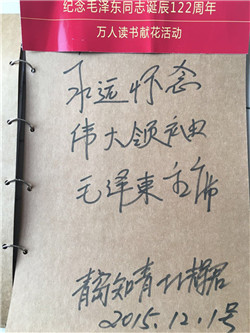 纪念毛泽东同志诞辰122周年
万人读书献花活动
永远怀念
伟大领袖
毛泽東主席
知青
2015.12.1号